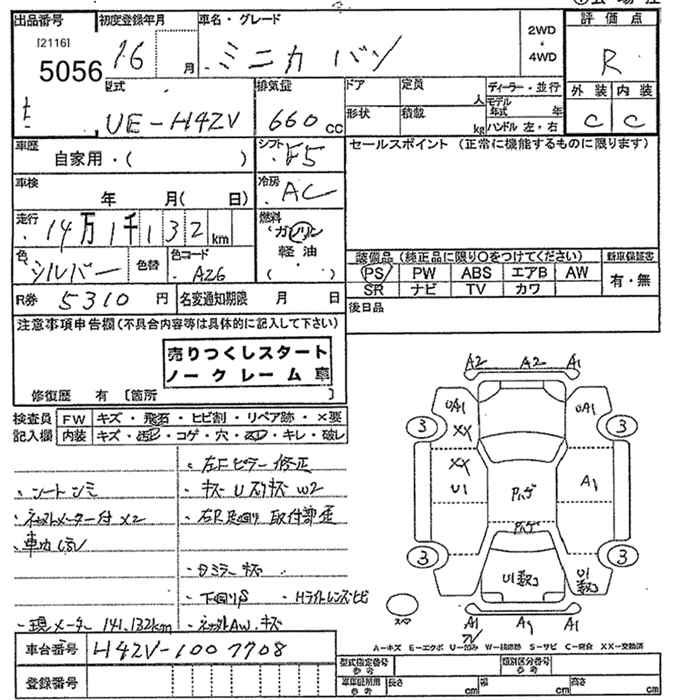 出品番号 初度登録年月 車名・グレード 2WD・4WD 評価点
[2116]
5056 16 月 ミニカ バン R
型式 排気量 ドア 定員 人 ディーラー・並行 外装 内装
UE-H42V 660 cc 形状 積載 kg モデル年式 年 C C
ハンドル 左・右
車歴 シフト セールスポイント (正常に機能するものに限ります)
自家用・( ) F5
車検 年 月( 日) 冷房 AC
走行 14万1千132km 燃料 ガソリン
軽油
( ・ )
色 シルバー 色替 色コード A26
装備品 (純正品に限り○をつけてください) 新車保証書
PS PW ABS エアB AW 有・無
SR ナビ TV カワ
R券 5310 円 名変通知期限 月 日 後日品
注意事項申告欄(不具合内容等は具体的に記入して下さい)
売りつくしスタート
ノークレーム車
修復歴 有 [箇所 ]
検査員 FW キズ・飛石・ヒビ割・リペア跡・×要
記入欄 内装 キズ・汚レ・コゲ・穴・凹・キレ・破レ
・左Fピラー修正
・シートシミ ・キズ U スリキズ W2
・右R足廻り 取付部歪
・Dミラーキズ
・下回りS ・Hライトレンズヒビ
・現メーター 141,132km
車台番号 H42V-1007708
登録番号
A2 A2 A1
UA1 UA1
3 XX 3
XX
U1 Pハゲ A1
Pハゲ
3 3
U1数コ U1数コ
スペア
A1 A1
A-キズ E-エクボ U-凹ミ W-補修跡 S-サビ C-腐食 XX-交換済
型式指定番号 参考 類別区分番号 参考
車車証記載用 参考 長さ cm 幅 cm 高さ cm